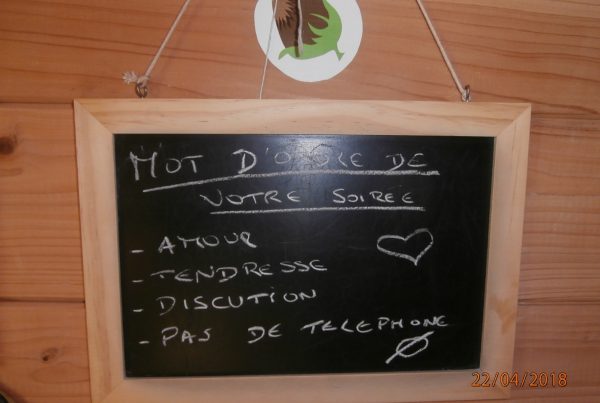 MOT D'ORDRE DE
VOTRE SOIREE
- AMOUR
- TENDRESSE
- DISCUTION
- PAS DE TELEPHONE
22/04/2018